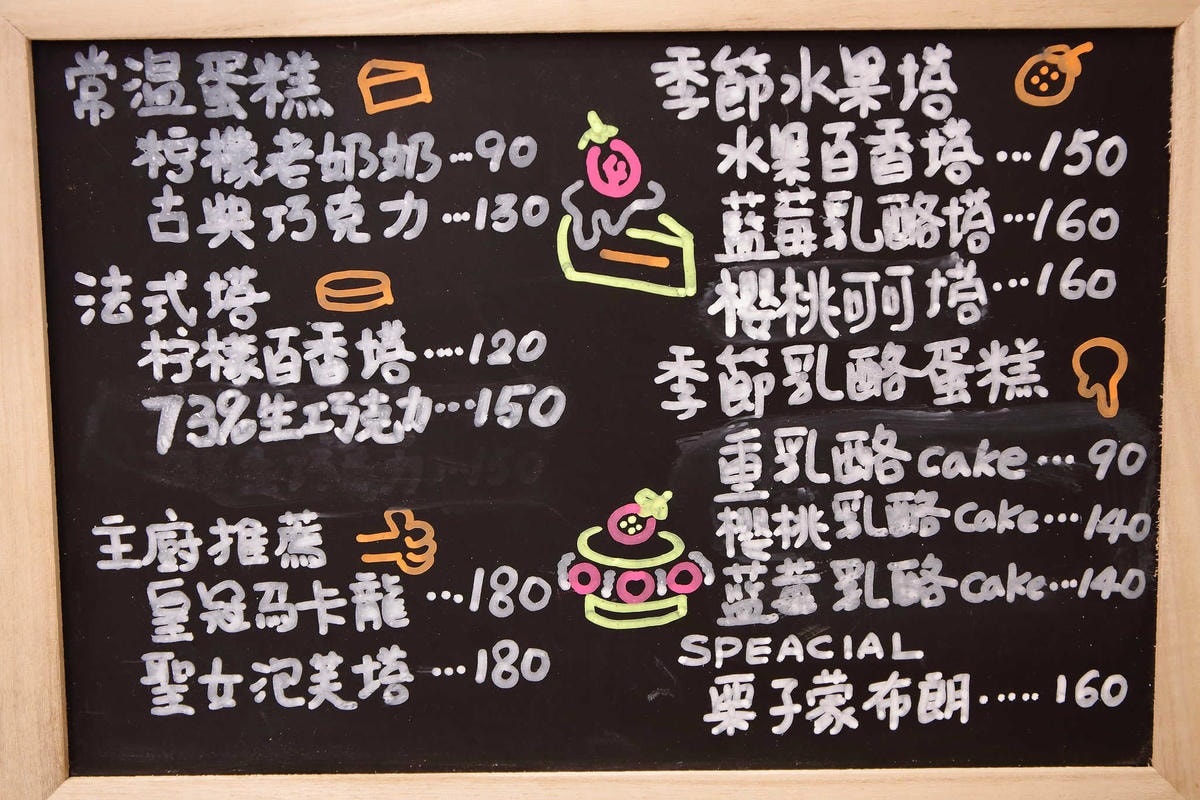 常温蛋糕
柠檬老奶奶…90
古典巧克力…130
法式塔
柠檬百香塔….120
73%生巧克力…150
主廚推薦
皇冠馬卡龍…180
聖女泡芙塔…180
季節水果塔
水果百香塔…150
蓝莓乳酪塔…160
櫻桃可可塔…160
季節乳酪蛋糕
重乳酪cake…90
櫻桃乳酪cake…140
蓝莓乳酪cake…140
SPEACIAL
栗子蒙布朗.....160